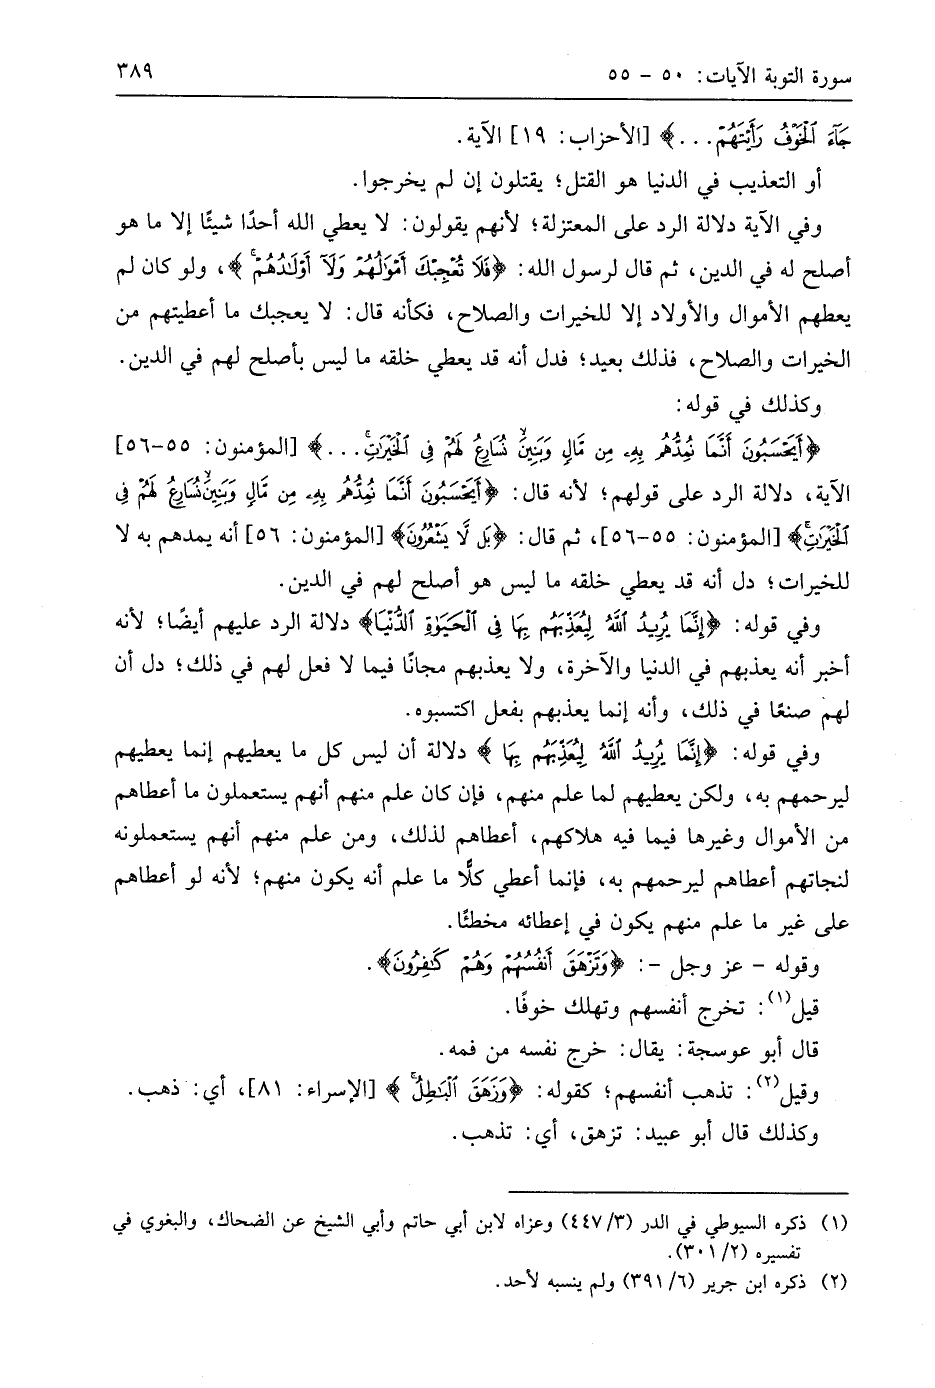 سورة التوبة الآيات: ٥٠ - ٥٥ ٣٨٩
جَآءَ ٱلْخَوْفُ رَأَيْتَهُمْ...﴾ [الأحزاب: ١٩] الآية.
أو التعذيب في الدنيا هو القتل؛ يقتلون إن لم يخرجوا.
وفي الآية دلالة الرد على المعتزلة؛ لأنهم يقولون: لا يعطي الله أحدًا شيئًا إلا ما هو
أصلح له في الدين، ثم قال لرسول الله: ﴿فَلَا تُعْجِبْكَ أَمْوَٰلُهُمْ وَلَآ أَوْلَٰدُهُمْ ۚ﴾، ولو كان لم
يعطهم الأموال والأولاد إلا للخيرات والصلاح، فكأنه قال: لا يعجبك ما أعطيتهم من
الخيرات والصلاح، فذلك بعيد؛ فدل أنه قد يعطي خلقه ما ليس بأصلح لهم في الدين.
وكذلك في قوله:
﴿أَيَحْسَبُونَ أَنَّمَا نُمِدُّهُم بِهِۦ مِن مَّالٍ وَبَنِينَ ۙ نُسَارِعُ لَهُمْ فِى ٱلْخَيْرَٰتِ ۚ...﴾ [المؤمنون: ٥٥-٥٦]
الآية، دلالة الرد على قولهم؛ لأنه قال: ﴿أَيَحْسَبُونَ أَنَّمَا نُمِدُّهُم بِهِۦ مِن مَّالٍ وَبَنِينَ ۙ نُسَارِعُ لَهُمْ فِى
ٱلْخَيْرَٰتِ ۚ﴾ [المؤمنون: ٥٥-٥٦]، ثم قال: ﴿بَل لَّا يَشْعُرُونَ﴾ [المؤمنون: ٥٦] أنه يمدهم به لا
للخيرات؛ دل أنه قد يعطي خلقه ما ليس هو أصلح لهم في الدين.
وفي قوله: ﴿إِنَّمَا يُرِيدُ ٱللَّهُ لِيُعَذِّبَهُم بِهَا فِى ٱلْحَيَوٰةِ ٱلدُّنْيَا﴾ دلالة الرد عليهم أيضًا؛ لأنه
أخبر أنه يعذبهم في الدنيا والآخرة، ولا يعذبهم مجانًا فيما لا فعل لهم في ذلك؛ دل أن
لهم صنعًا في ذلك، وأنه إنما يعذبهم بفعل اكتسبوه.
وفي قوله: ﴿إِنَّمَا يُرِيدُ ٱللَّهُ لِيُعَذِّبَهُم بِهَا ﴾ دلالة أن ليس كل ما يعطيهم إنما يعطيهم
ليرحمهم به، ولكن يعطيهم لما علم منهم، فإن كان علم منهم أنهم يستعملون ما أعطاهم
من الأموال وغيرها فيما فيه هلاكهم، أعطاهم لذلك، ومن علم منهم أنهم يستعملونه
لنجاتهم أعطاهم ليرحمهم به، فإنما أعطي كلًّا ما علم أنه يكون منهم؛ لأنه لو أعطاهم
على غير ما علم منهم يكون في إعطائه مخطئًا.
وقوله - عز وجل -: ﴿وَتَزْهَقَ أَنفُسُهُمْ وَهُمْ كَٰفِرُونَ﴾.
قيل(١): تخرج أنفسهم وتهلك خوفًا.
قال أبو عوسجة: يقال: خرج نفسه من فمه.
وقيل(٢): تذهب أنفسهم؛ كقوله: ﴿وَزَهَقَ ٱلْبَٰطِلُ ۚ ﴾ [الإسراء: ٨١]، أي: ذهب.
وكذلك قال أبو عبيد: تزهق، أي: تذهب.
(١) ذكره السيوطي في الدر (٤٤٧/٣) وعزاه لابن أبي حاتم وأبي الشيخ عن الضحاك، والبغوي في
تفسيره (٣٠١/٢).
(٢) ذكره ابن جرير (٣٩١/٦) ولم ينسبه لأحد.